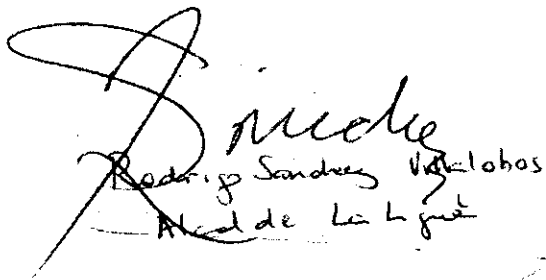 Sánchez
Rodrigo Sánchez Villalobos
Alcalde La Ligua